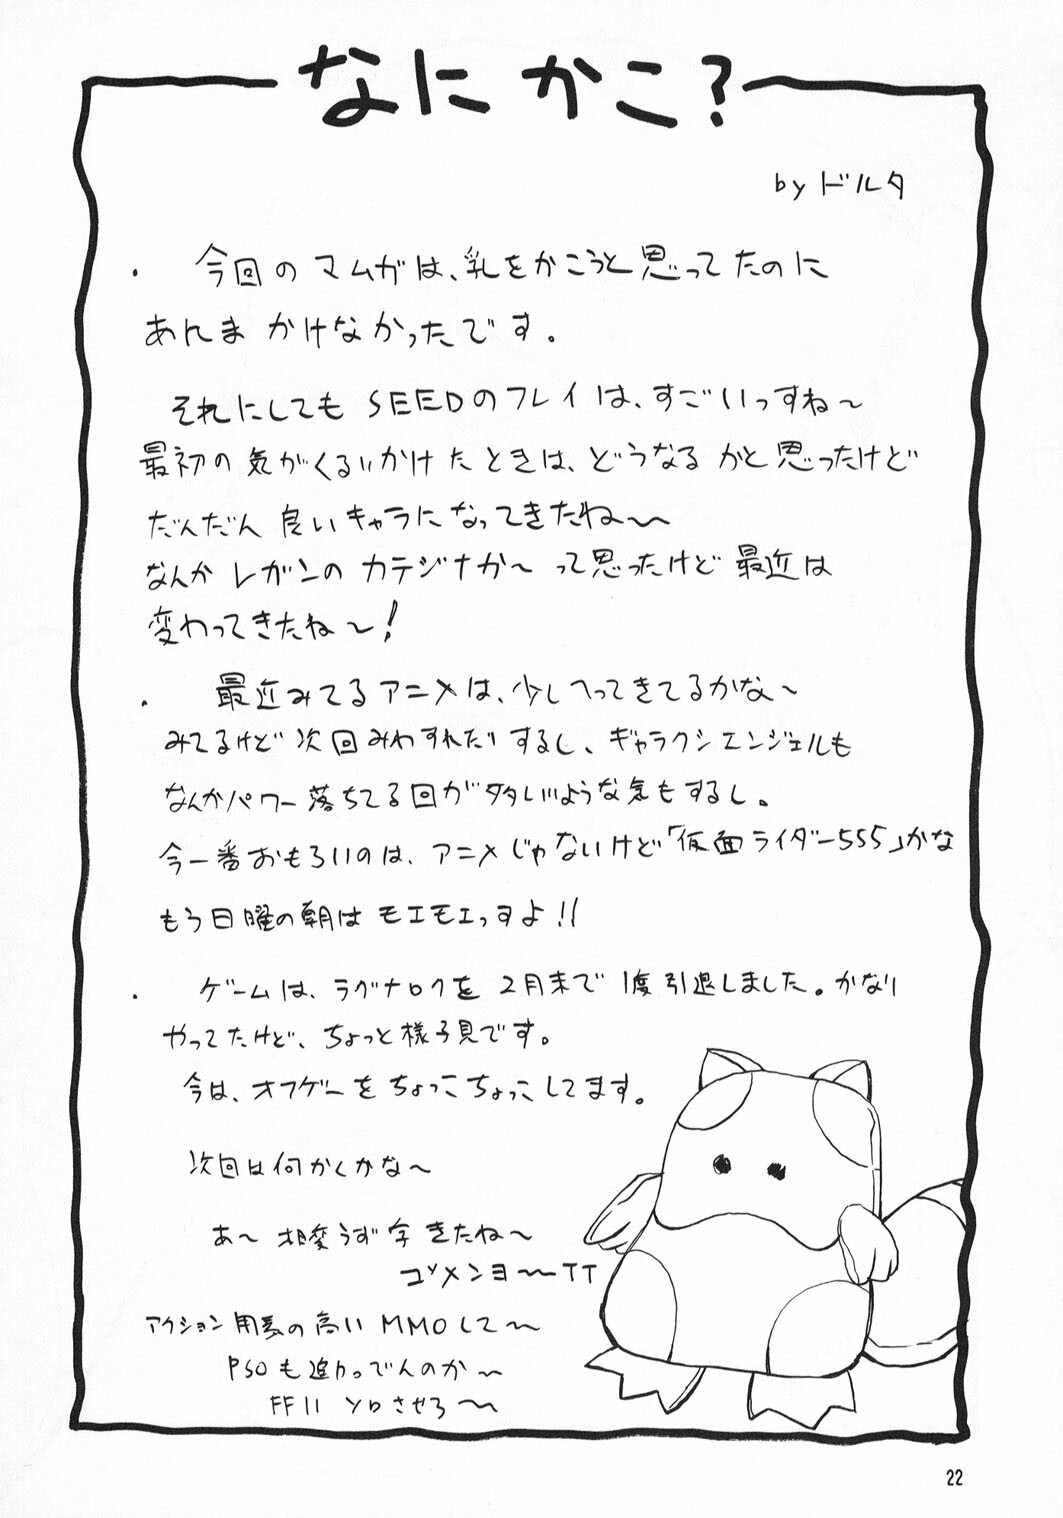 なにかこ?
by ドルタ
・ 今回のマムガは、乳をかこうと思ってたのに
あんま かけなかったです。
それにしても SEEDのフレイは、すごいっすね〜
最初の気がくるいかけたときは、どうなるかと思ったけど
だんだん 良いキャラになってきたね〜
なんか レガンの カテジナか〜 って思ったけど 最近は
変わってきたね〜!
・ 最近みてるアニメは、少しへってきてるかな〜
みてるけど 次回みわすれたりするし、ギャラクシエンジェルも
なんかパワー落ちてる回が多いような気もするし。
今一番おもろいのは、アニメじゃないけど「仮面ライダー555」かな
もう日曜の朝は モエモエっすよ!!
・ ゲームは、ラグナロクを 2月末で 1度引退しました。かなり
やってたけど、ちょっと様子見です。
今は、オフゲーをちょっこちょっこしてます。
次回は何かくかな〜
あ〜 相変うず字 きたね〜
ゴメンヨ〜〜TT
アクション用素の高い MMOして〜
PSOも追加っでんのか〜
FF11 ソロさせろ〜
22